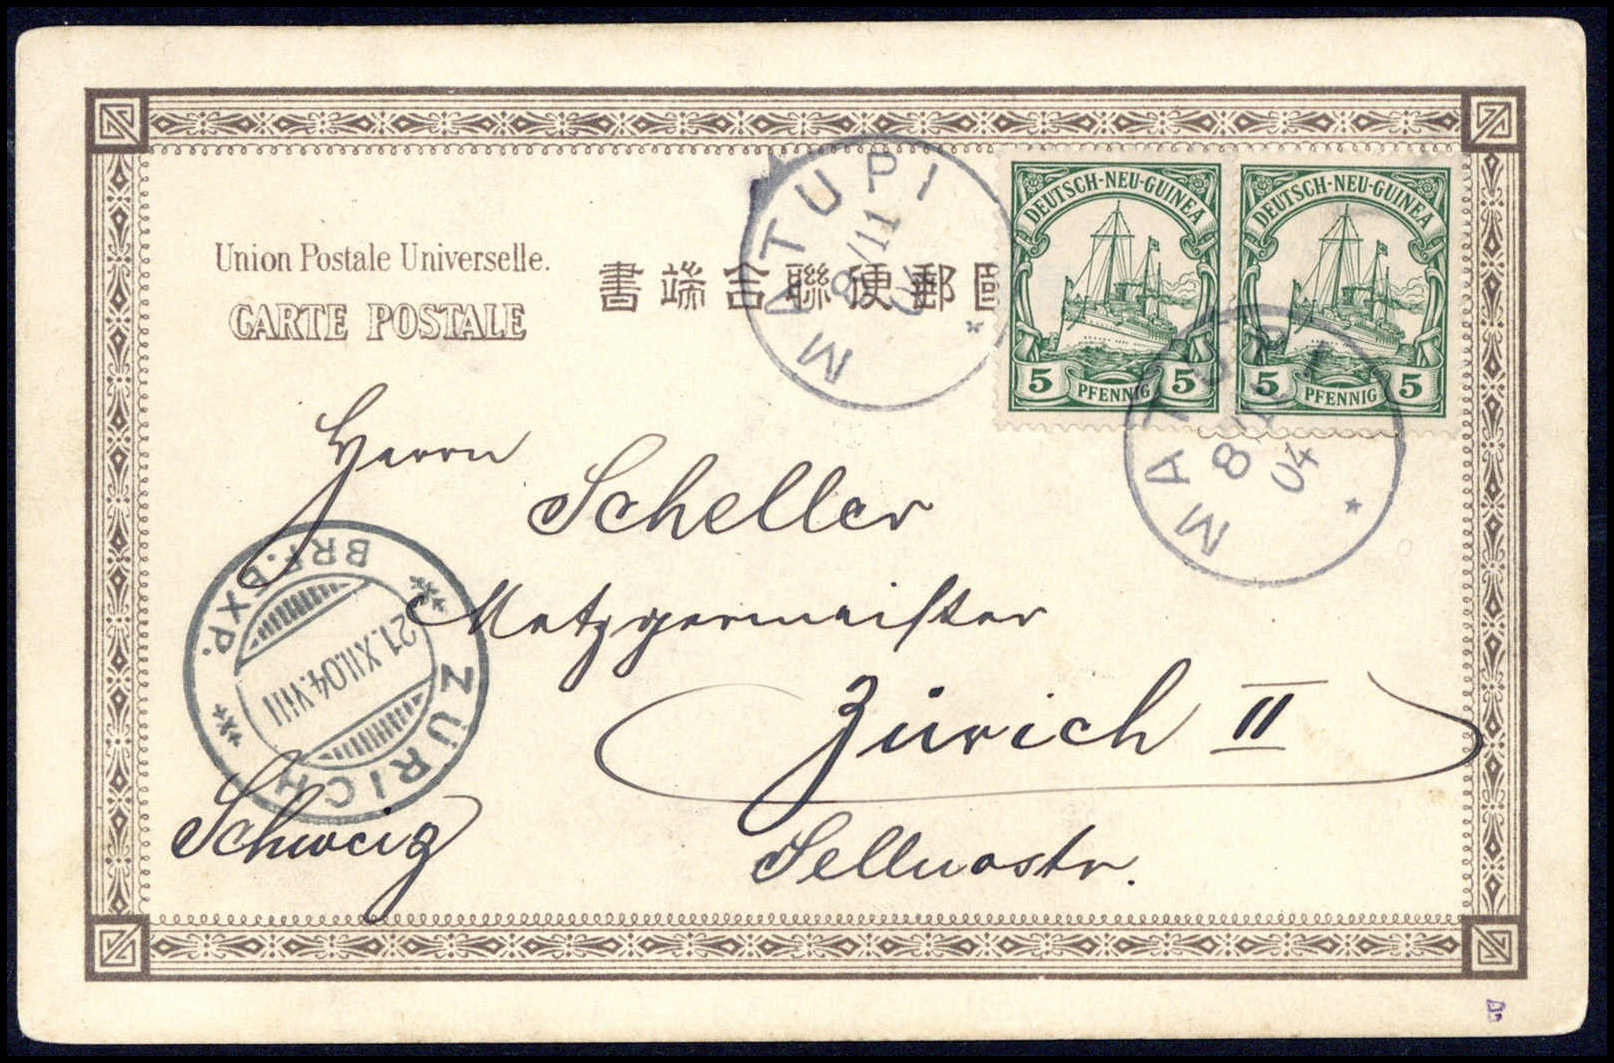 Union Postale Universelle.
CARTE POSTALE
書端合聯便郵國
MATUPI
8/11
04
*
DEUTSCH-NEU-GUINEA
5 PFENNIG 5
DEUTSCH-NEU-GUINEA
5 PFENNIG 5
MATUPI
8/11
04
*
Herrn
Scheller
Metzgermeister
Zürich II
Sellnostr.
Schweiz
ZÜRICH
BRF. EXP.
21.XII.04.VIII